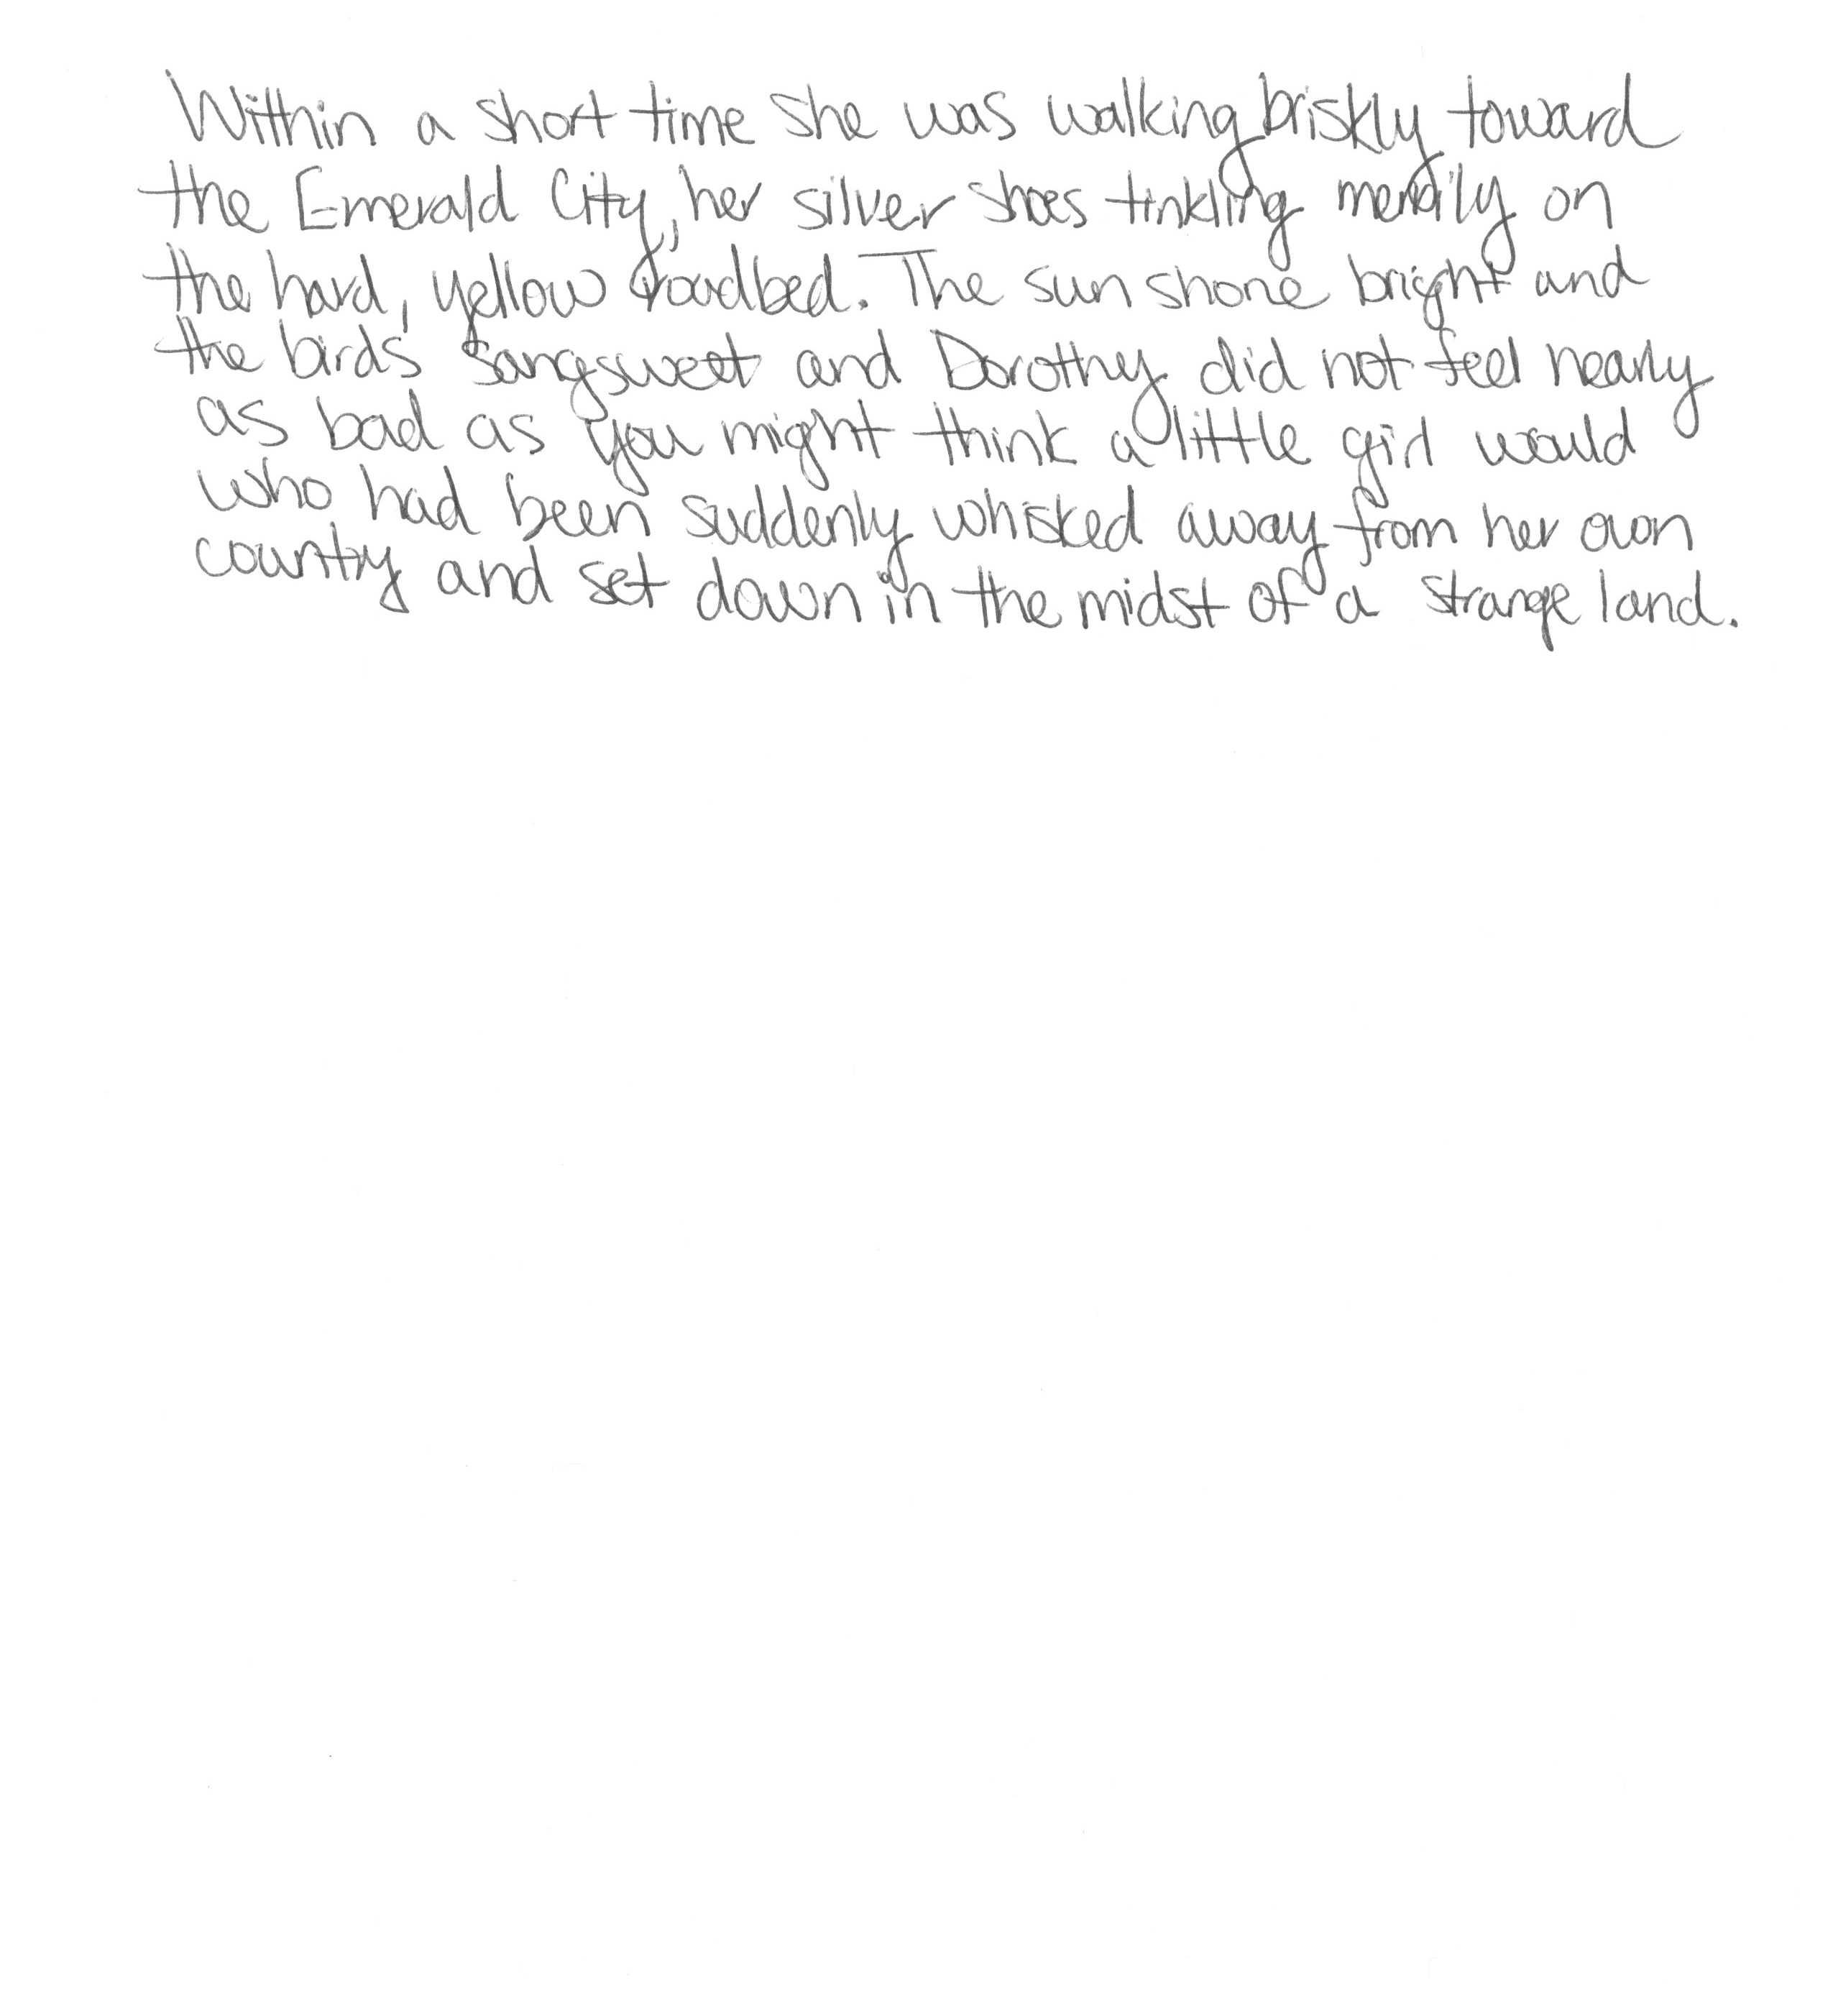 Within a short time she was walking briskly toward
the Emerald City, her silver shoes tinkling merrily on
the hard, yellow roadbed. The sun shone bright and
the birds sang sweet and Dorothy did not feel nearly
as bad as you might think a little girl would
who had been suddenly whisked away from her own
country and set down in the midst of a strange land.